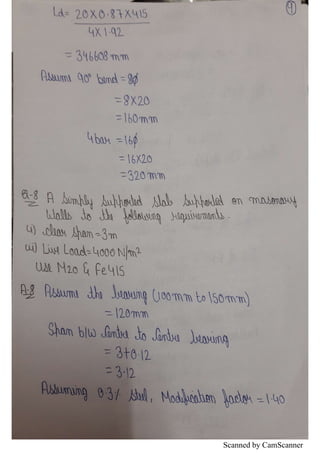 9
Ld = 20X0.87X415
4X1.92
= 346608mm
Assume 90° bend = 8ϕ
= 8X20
= 160mm
4bar = 16ϕ
= 16X20
= 320mm
Q-8 A Simply Supported Slab Supported on masonary
Walls to the following requirements.
i) clear span = 3m
ii) Live Load = 4000 N/m2
Use M20 & Fe415
A.8 Assume the bearing (100mm to 150mm)
= 120mm
Span b/w Centre to Centre bearing
= 3+0.12
= 3.12
Assuming 0.3% Steel, Modification factor = 1.40
Scanned by CamScanner